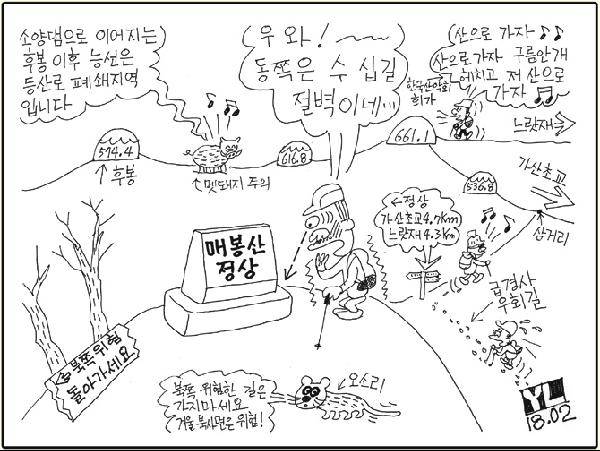 소양댐으로 이어지는
후봉 이후 능선은
등산로 폐쇄지역
입니다
우 와! ~
동쪽은 수 십길
절벽이네...
산으로 가자 ♪♪
산으로 가자 구름안개
헤치고 저 산으로
가자 ♬
한국산악회
회가
661.1
느랏재
574.4
↑후봉
↑멧돼지 주의
616.8
536.8
가산초교
삼거리
←정상
가산초교4.7km
느랏재4.3km
매봉산
정상
급경사
우회길
북쪽위험
돌아가세요
북쪽 위험한 길은
가지마세요
겨울 북사면은 위험!
↓오소리
YL
18.02